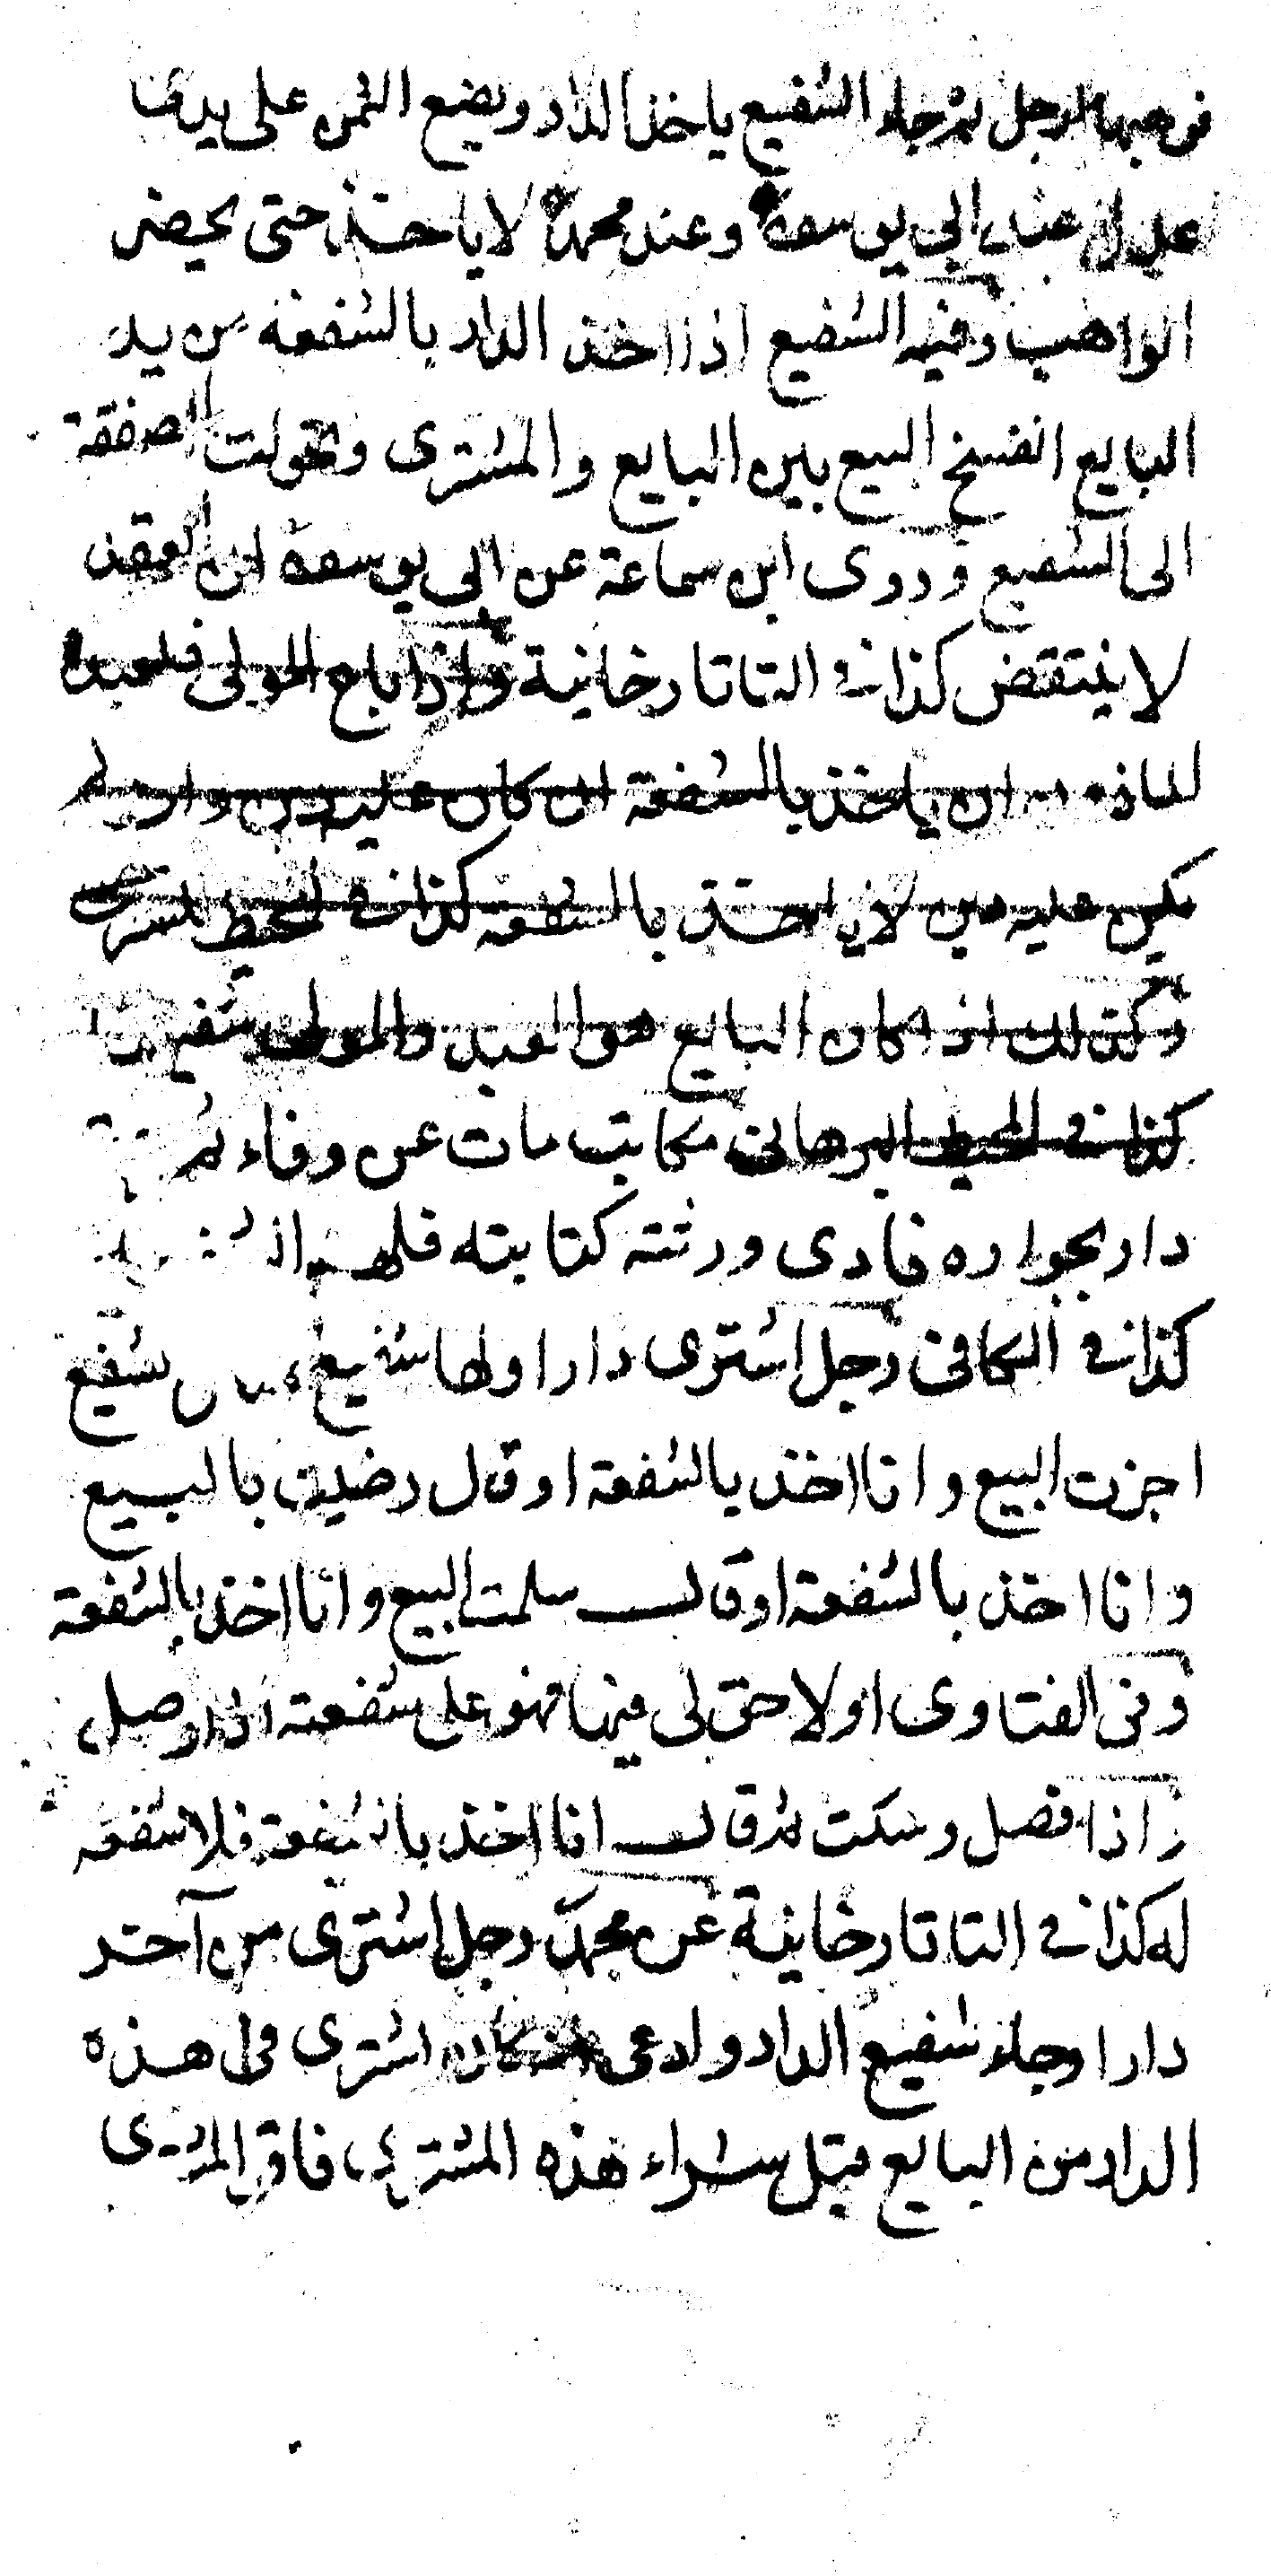 فوهبها لرجل ثم جاء الشفيع ياخذ الدار ويضع الثمن على يدى
عدل عند ابي يوسف وعند محمد لا ياخذ حتى يحضر
الواهب وفيه الشفيع اذا اخذ الدار بالشفعة من يد
البايع انفسخ البيع بين البايع والمشترى وتحولت الصفقة
الى الشفيع وروى ابن سماعة عن ابي يوسف ان العقد
لا ينتقض كذا في التاتارخانية واذا باع المولى فلعبده
الماذون ان ياخذ بالشفعة ان كان عليه دين وان لم
يكن عليه دين لا ياخذ بالشفعة كذا في المحيط للسرخسى
وكذلك اذا كان البايع هو العبد والمولى شفيعها
كذا في المحيط البرهاني مكاتب مات عن وفاء ثم
دار بجواره فادى ورثته كتابته فلهم
كذا في الكافي رجل اشترى دارا ولها شفيع شفيع
اجزت البيع وانا اخذ بالشفعة او قال رضيت بالبيع
وانا اخذ بالشفعة او قال سلمت البيع وانا اخذ بالشفعة
وفي الفتاوى او لا حق لى فيها فهو على شفعته اذا وصل
واذا فصل وسكت ثم قال انا اخذ بالشفعة فلا شفعة
له كذا في التاتارخانية عن محمد رجل اشترى من آخر
دارا وجاء شفيع الدار وادعى انه كان اشترى هذه
الدار من البايع قبل شراء هذه المشترى فاقر المشترى